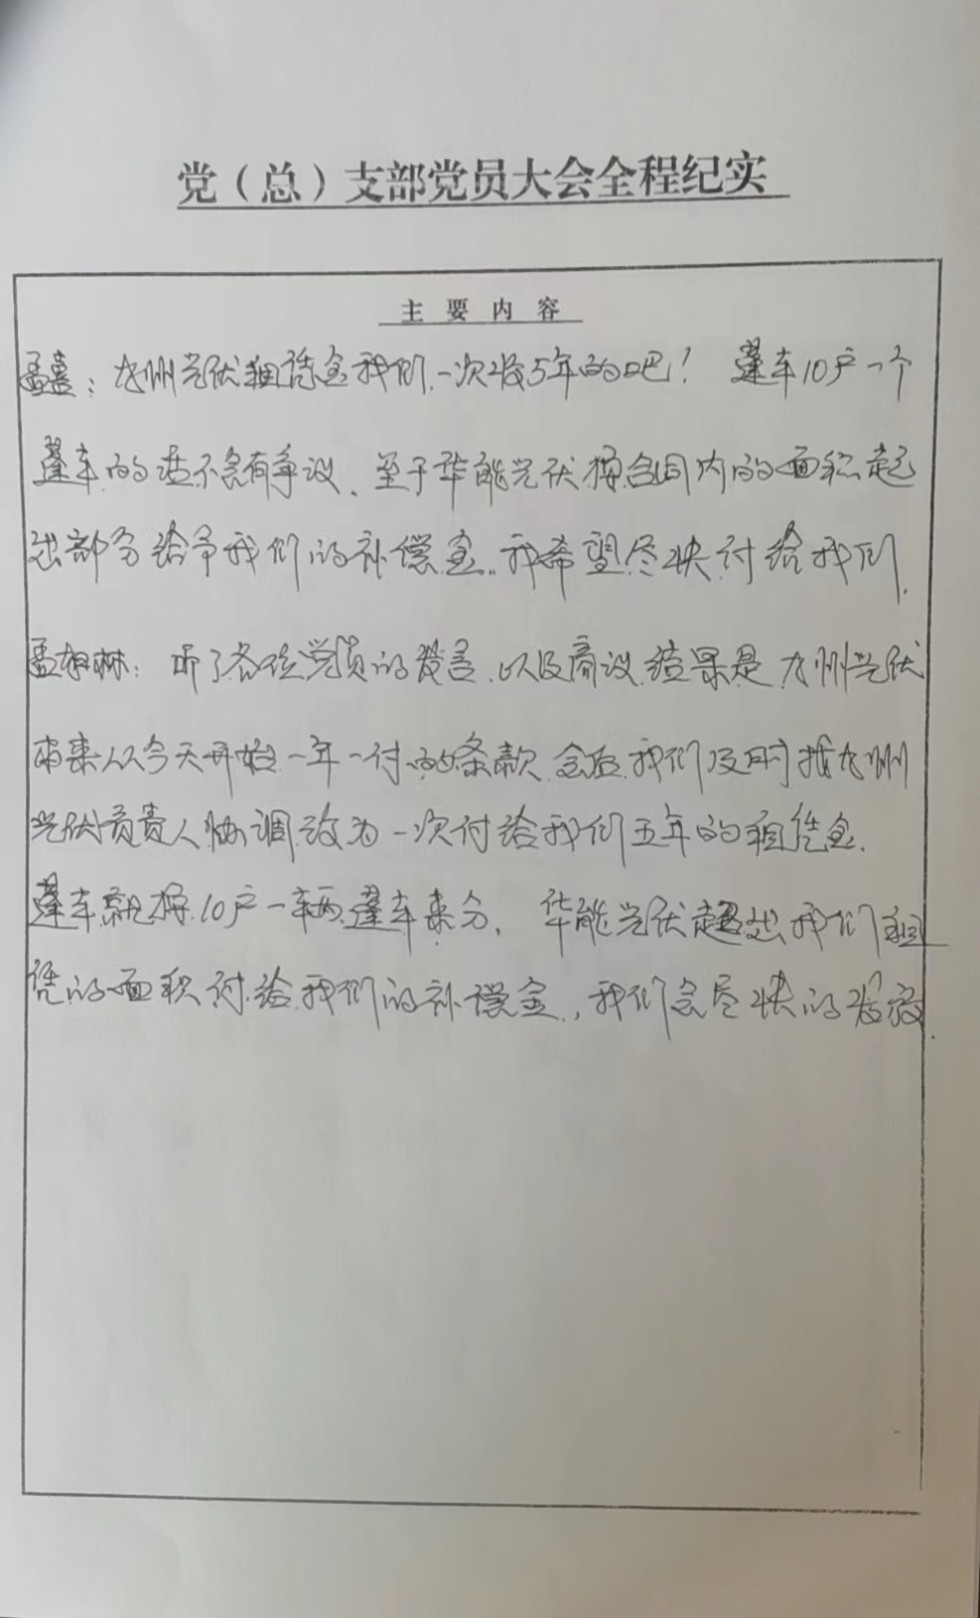 党（总）支部党员大会全程纪实
主要内容
孟喜：九州光伏租赁金我们一次收5年的吧！ 蓬车10户一个
蓬车的话不会有争议、至于华能光伏按合同内的面积起
出部分给予我们的补偿金、我希望尽快付给我们.
孟相林：听了各位党员的发言、以及商议结果是九州光伏
本来从今天开始一年一付的条款会后我们及时找九州
光伏负责人协调改为一次付给我们五年的租赁金.
蓬车就按10户一辆蓬车来分. 华能光伏超出我们租
赁的面积付给我们的补偿金., 我们会尽快的发放.